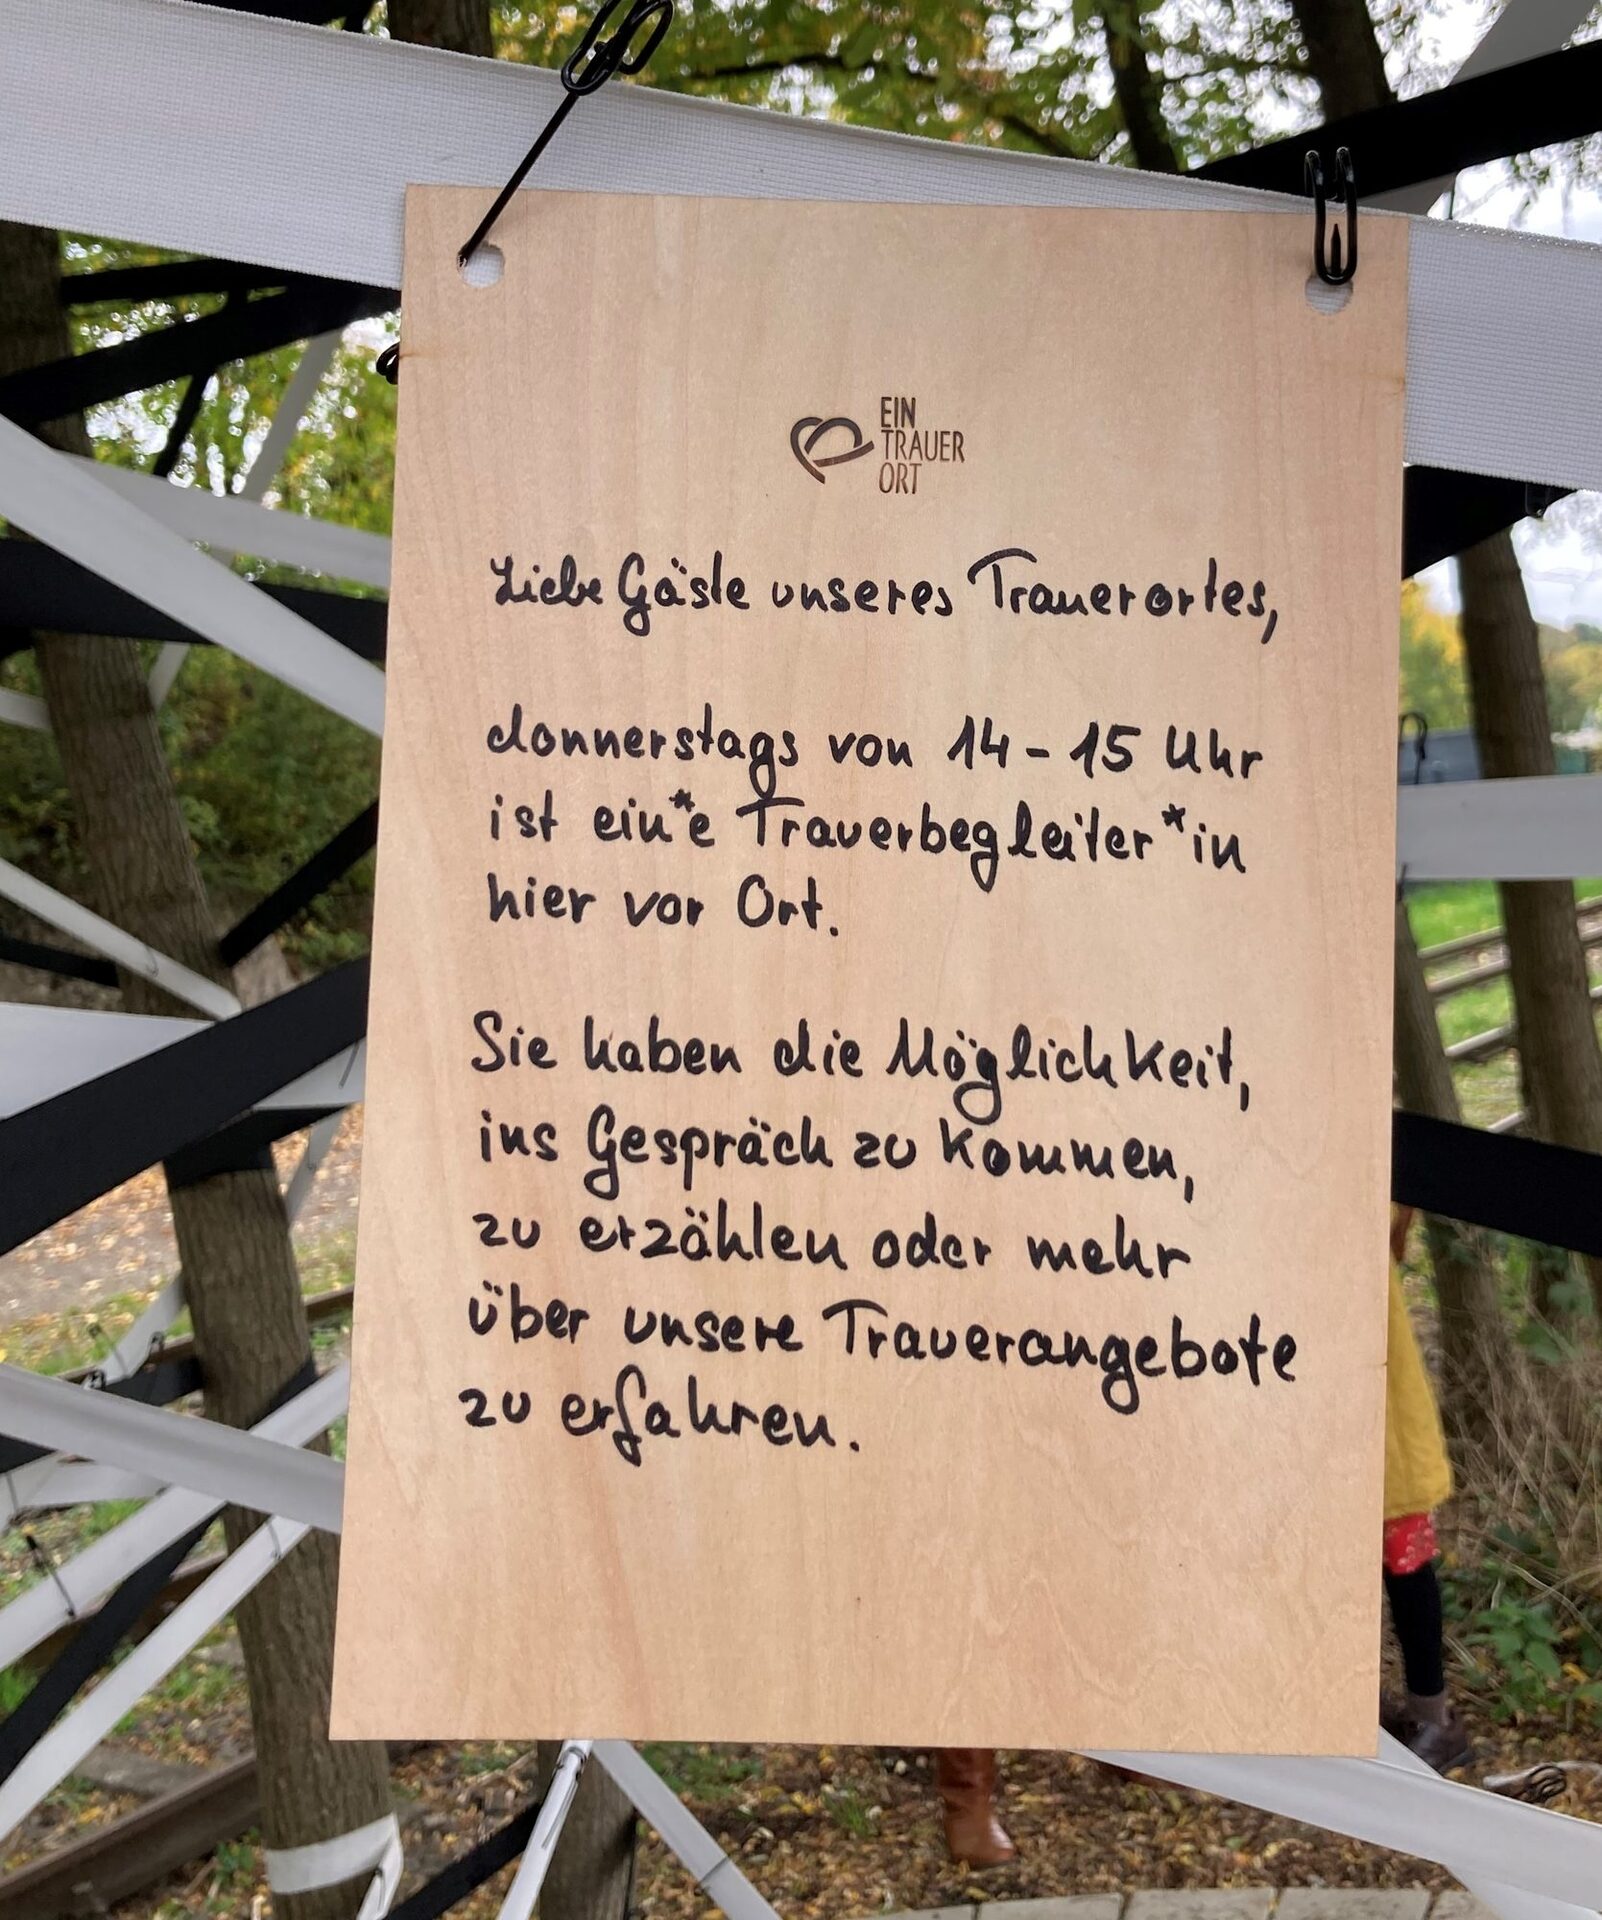 EIN
TRAUER
ORT
Liebe Gäste unseres Trauerortes,
donnerstags von 14-15 Uhr
ist ein*e Trauerbegleiter*in
hier vor Ort.
Sie haben die Möglichkeit,
ins Gespräch zu kommen,
zu erzählen oder mehr
über unsere Trauerangebote
zu erfahren.